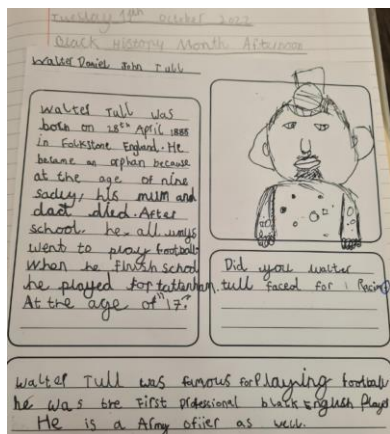 Tuesday 11th October 2022
Black History Month Afternoon
Walter Daniel John Tull
Walter Tull was
born on 28th April 1888
in Folkstone England. He
became an orphan because
at the age of nine
sadly, his mum and
dad died. After
school he all ways
went to play football
When he finish school
he played for tottenham.
At the age of "17."
Did you walter
tull faced for
Walter Tull was famous for Playing football
he was the First professional black English player
He is a Army officer as well.